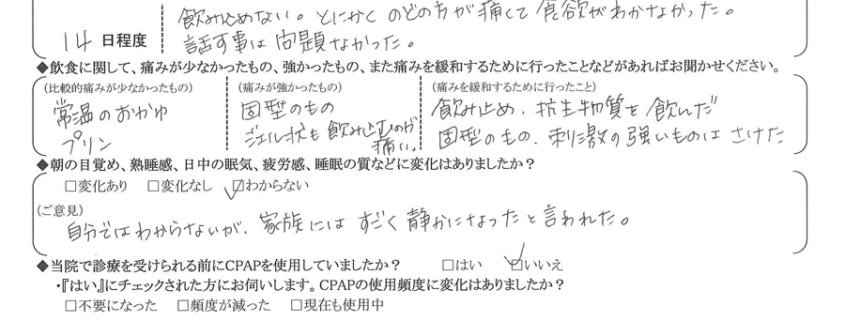 飲み止めない。とにかくのどの方が痛くて食欲がわかなかった。
14 日程度 話す事は問題なかった。
◆飲食に関して、痛みが少なかったもの、強かったもの、また痛みを緩和するために行ったことなどがあればお聞かせください。
(比較的痛みが少なかったもの) (痛みが強かったもの) (痛みを緩和するために行ったこと)
常温のおかゆ 固型のもの 飲み止め、抗生物質を飲んだ
プリン ジェル状も飲み込むのが痛い。 固型のもの、刺激の強いものはさけた
◆朝の目覚め、熟睡感、日中の眠気、疲労感、睡眠の質などに変化はありましたか？
□変化あり □変化なし ☑わからない
(ご意見)
自分ではわからないが、家族にはすごく静かになったと言われた。
◆当院で診療を受けられる前にCPAPを使用していましたか？ □はい ☑いいえ
・『はい』にチェックされた方にお伺いします。CPAPの使用頻度に変化はありましたか？
□不要になった □頻度が減った □現在も使用中